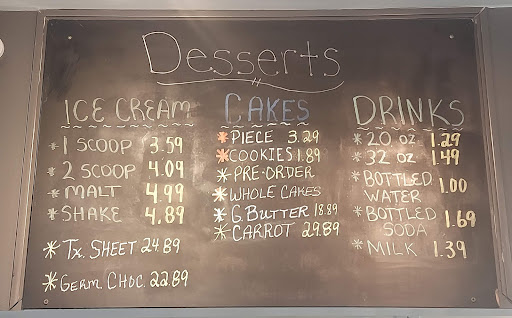 Desserts
ICE CREAM
* 1 SCOOP 3.59
* 2 SCOOP 4.09
* MALT 4.99
* SHAKE 4.89
* Tx. SHEET 24.89
* GERM. CHOC. 22.89
CAKES
* PIECE 3.29
* COOKIES 1.89
* PRE-ORDER
* WHOLE CAKES
* G. BUTTER 18.89
* CARROT 29.89
DRINKS
* 20 OZ 1.29
* 32 OZ 1.49
* BOTTLED WATER 1.00
* BOTTLED SODA 1.69
* MILK 1.39